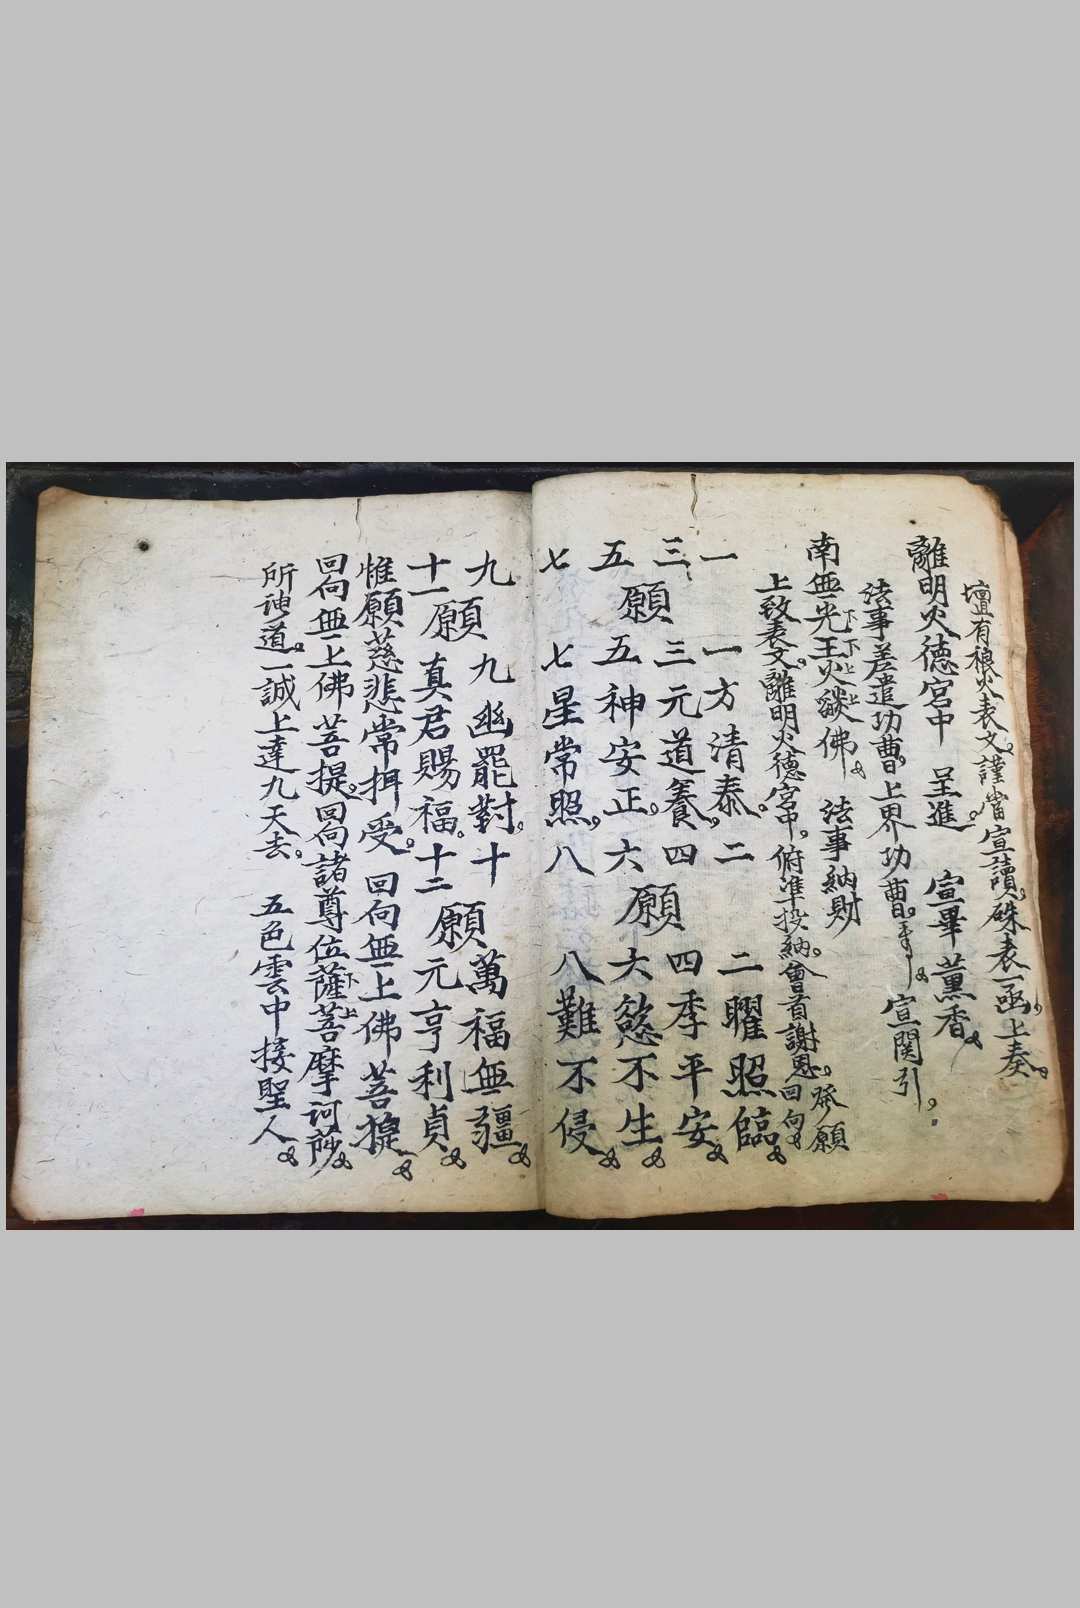 壇有禳火表文謹當宣讀硃表一函上奏
離明火德宮中　呈進　宣畢薰香
法事差遣功曹上界功曹　宣関引
南無光王火燄佛　法事納財
下下上上
上致表文離明火德宮中俯準投納會首謝恩回向
發願
一　一方清泰二　二曜照臨
三　三元道養四　四季平安
願　願
五　五神安正六　六慾不生
七　七星常照八　八難不侵
九　九幽罷對十　萬福無疆
願　願
十一　真君賜福十二　元亨利貞
惟願慈悲常揖受回向無上佛菩提
回向無上佛菩提回向諸尊位薩菩摩訶
下上
所　道一誠上達九天去　五色雲中接聖人